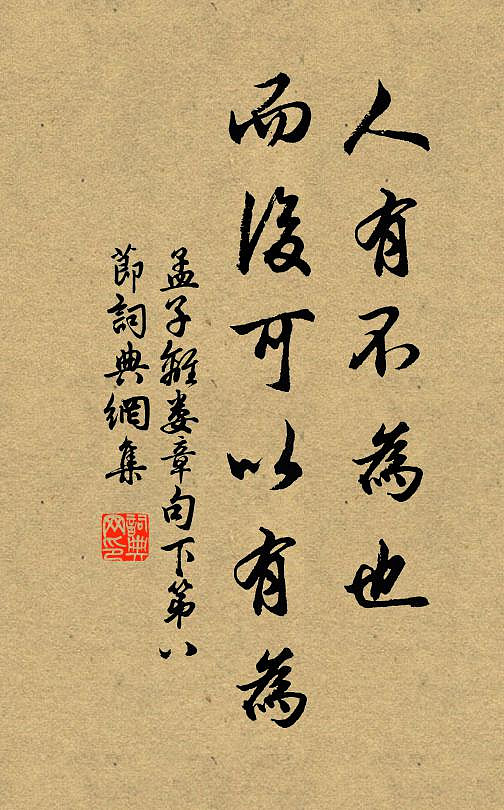 人有不為也
而後可以有為
孟子離婁章句下第八
節詞典網集
詞典网印